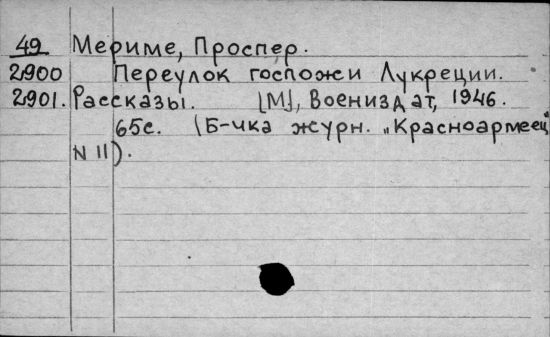 49 Мериме, Проспер.
2900 Переулок госпожи Лукреции.
2901. Рассказы. [М], Воениздат, 1946.
65с. (Б-чка журн. „Красноармеец"
N 11).